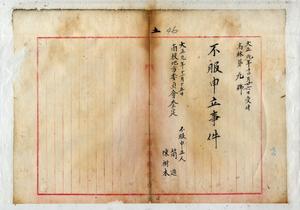 大正九年十二月六日受付
高林第九號
不服申立事件
大正九年十一月十五日
南投地方委員會査定
不服申立人
簡遊
陳樹木
土 46